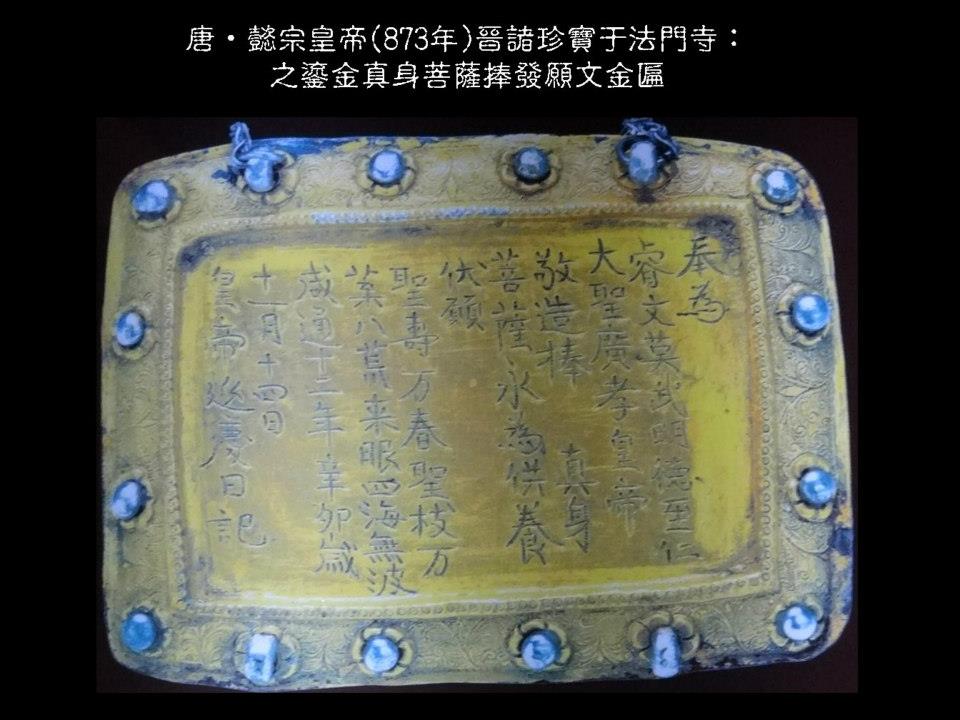 唐・懿宗皇帝(873年)晉諸珍寶于法門寺：
之鎏金真身菩薩捧發願文金匾
奉為
睿文英武明德至仁
大聖廣孝皇帝
敬造捧　真身
菩薩永為供養
伏願
聖壽万春聖枝万
葉八荒来服四海無波
咸通十二年辛卯歲
十一月十四日
皇帝延慶日記